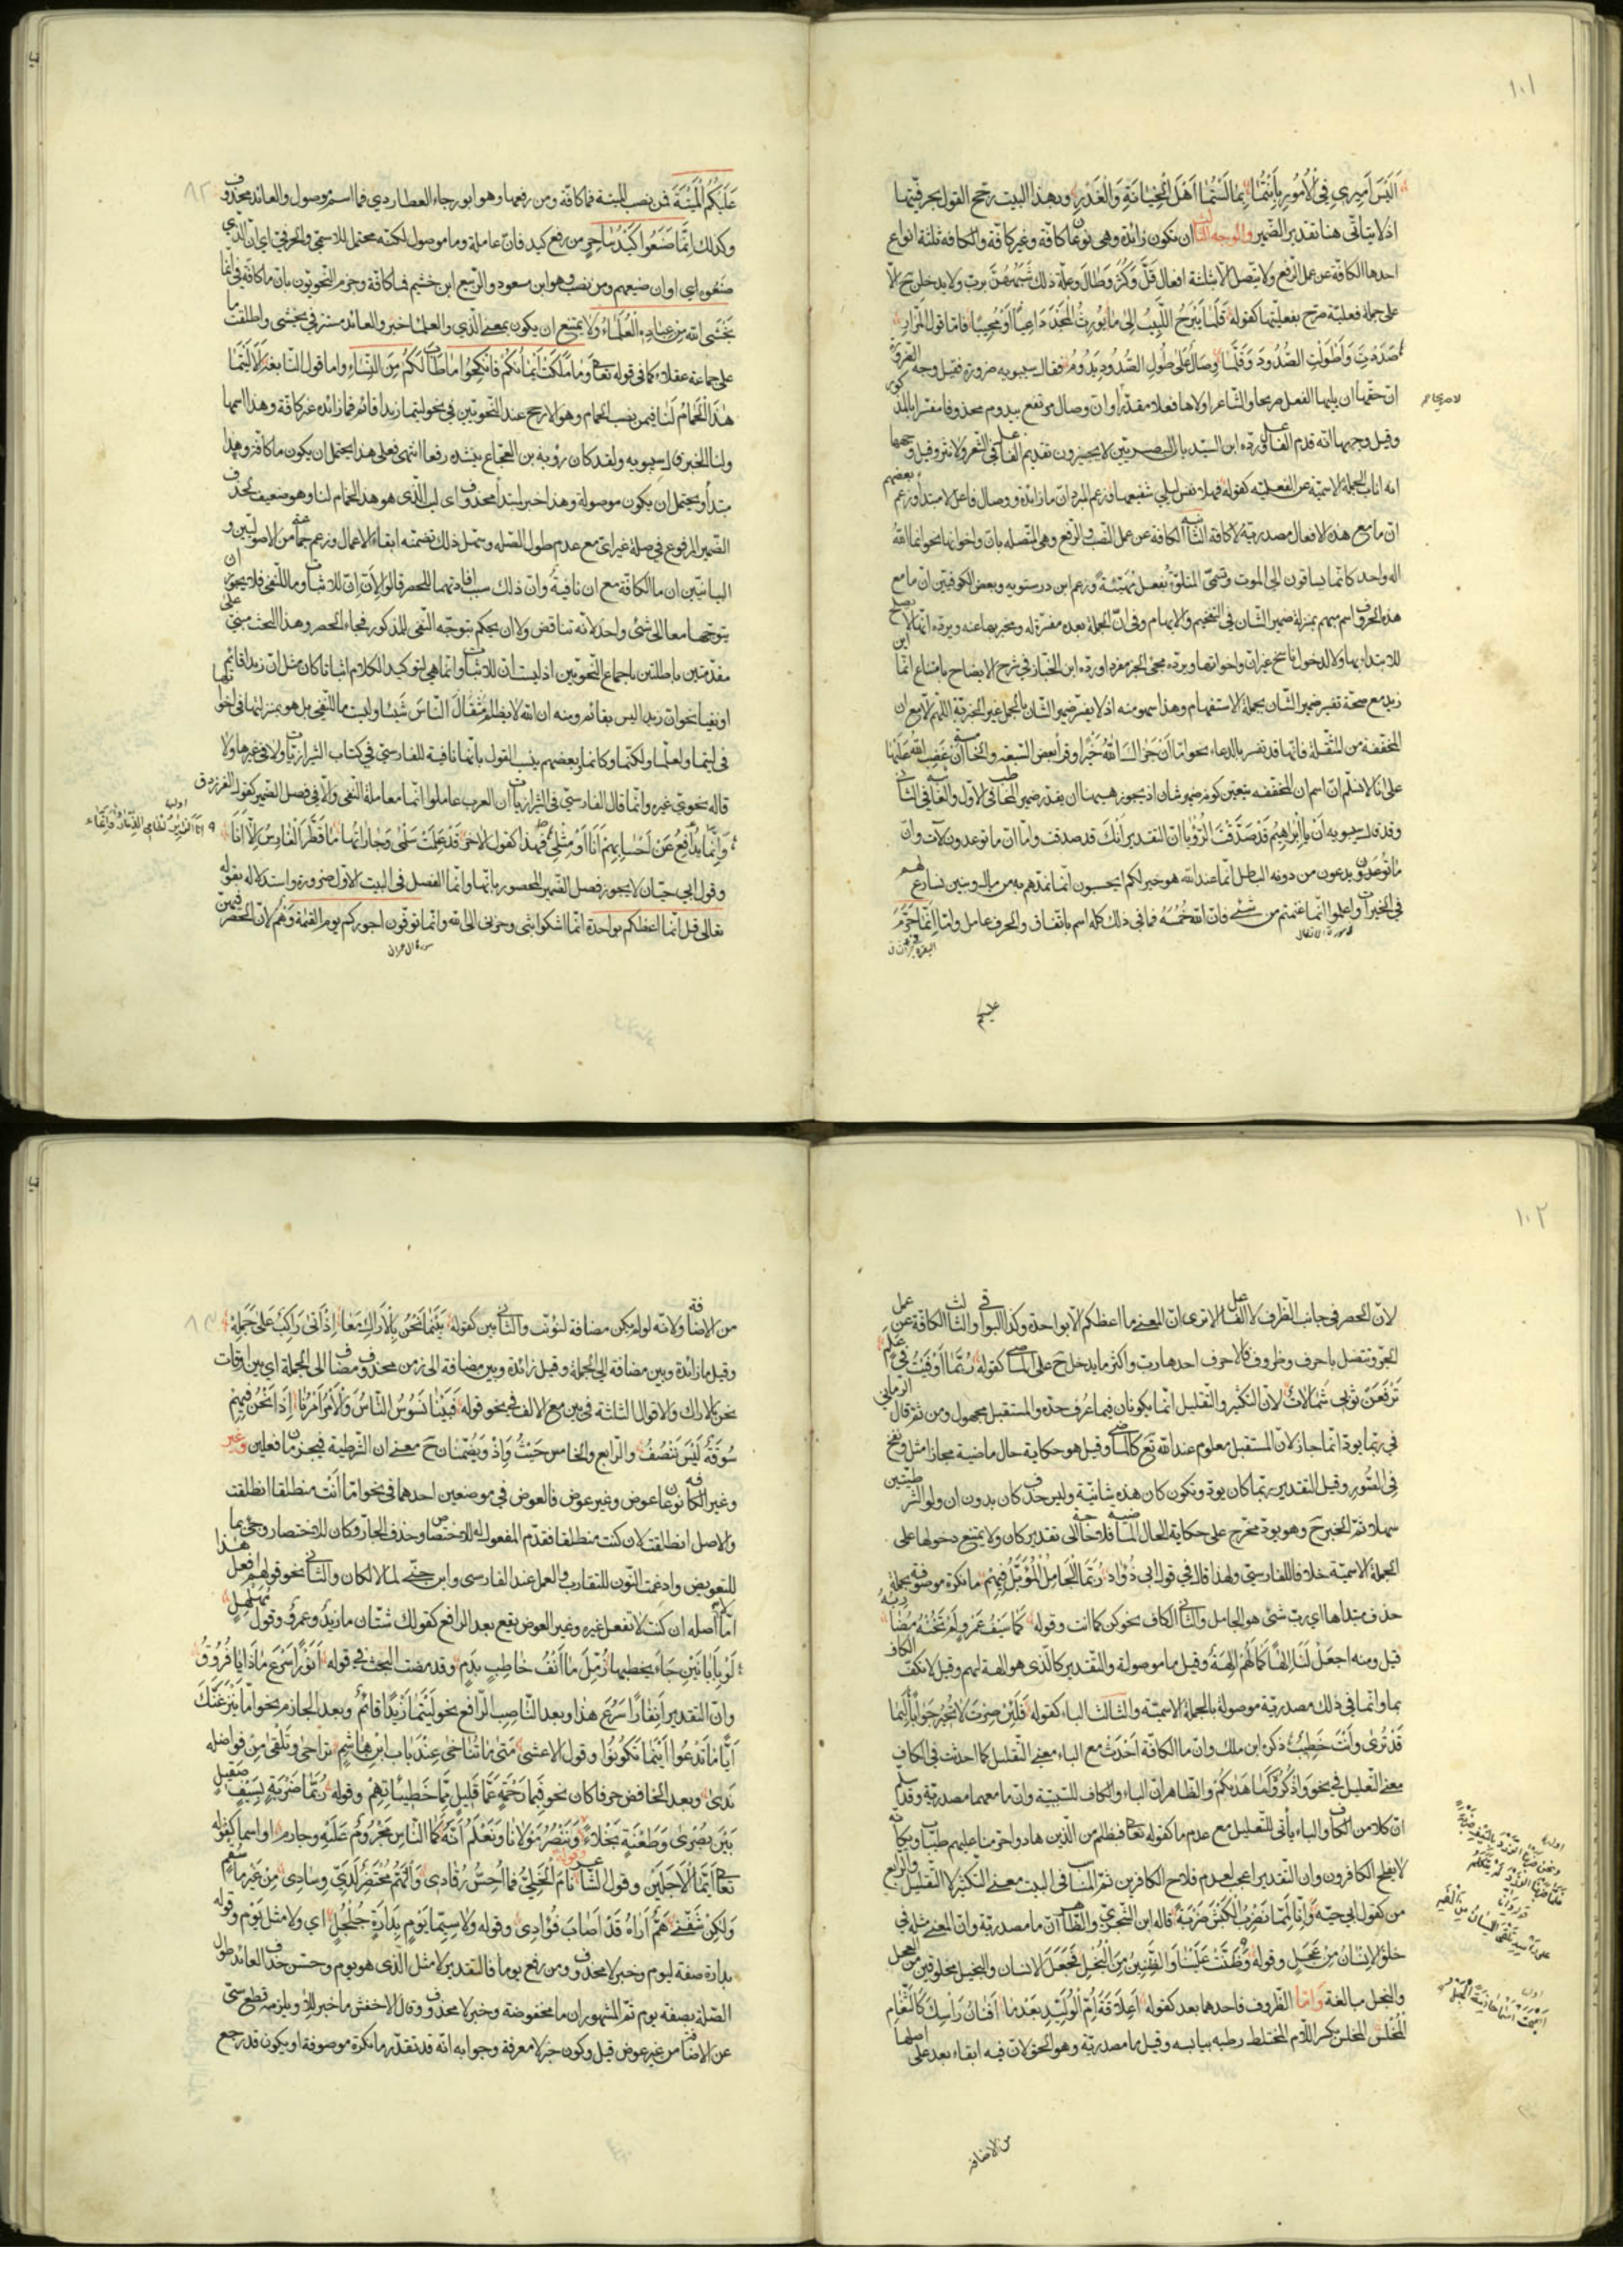 ١٠١
اَلَيْسَ اَمِيرِي فِي الْاُمُورِ بِاَنْتُمَا بِمَا لَسْتُمَا اَهْلَ الْخِيَانَةِ وَالْغَدْرِ وبهذا البيت رجح القول بحرفيتها
اذ لا يتأتى هنا تقدير الضمير والوجه الثالث ان تكون زائدة وهى نوعان كافة وغير كافة والكافة ثلثة انواع
احدها الكافة عن عمل الرفع ولا يتصل الا بثلثة افعال قَلَّ وَكَثُرَ وَطَالَ وعلة ذلك شبههن برب ولا يدخل ح الا
على جملة فعلية صرح بفعليتها كقوله قَلَّمَا يَبْرَحُ اللَّبِيبُ اِلى مَا يُورِثُ الْمَجْدَ دَاعِيًا اَوْ مُجِيبًا فاما قول المرار
صَدَدْتِ وَاَطْوَلْتِ الصُّدُودَ وَقَلَّمَا وِصَالٌ عَلى طُولِ الصُّدُودِ يَدُومُ فقال سيبويه ضرورة فقيل وجه الضرورة
ان حقها ان يليها الفعل صريحا والشاعر اولاها فعلا مقدرا وان وصال مرتفع بيدوم محذوفا مفسرا بالمذكور
وقيل وجهها انه قدم الفاعل ورده ابن السيد بان البصريين لا يجيزون تقديم الفاعل فى الشعر ولا نثر وقيل وجهها
انه اناب الجملة الاسمية عن الفعلية كقوله فهلا نفس ليلى شفيعها وزعم المبرد ان ما زائدة ووصال فاعل لا مبتدأ وزعم بعضهم
ان ما مع هذه الافعال مصدرية لا كافة الثانية الكافة عن عمل النصب والرفع وهى المتصلة بان واخواتها نحو انما الله
اله واحد كانما يساقون الى الموت وتسمى المتلوة بفعل مهيئة وزعم ابن درستويه وبعض الكوفيين ان ما مع
هذه الحروف اسم مبهم بمنزلة ضمير الشان فى التفخيم والابهام وفى ان الجملة بعده مفسرة له ومخبر بها عنه ويرده انها لا تصلح
للابتداء بها ولا لدخول ناسخ غير ان واخواتها ورده ابن الخباز فى شرح الايضاح بامتناع انما اين
زيد مع صحة تفسير ضمير الشان بجملة الاستفهام وهذا سهو منه اذ لا يفسر ضمير الشان بالجمل غير الخبرية اللهم الا مع ان
المخففة من الثقيلة فانها قد تفسر بالدعاء نحو اما ان جزاك الله خيرا وقرأ بعض السبعة والخامسة ان غضب الله عليها
على انا لا نسلم ان اسم ان المخففة يتعين كونه ضمير شان اذ يجوز هيهنا ان يقدر ضمير المخاطب فى الاول والغائبة فى الثانى
وقد قال سيبويه اَنْ يَا اِبْرَاهِيمُ قَدْ صَدَّقْتَ الرُّؤْيَا ان التقدير انك قد صدقت واما ان ما توعدون لآت وان
ما تدعون يدعون من دونه الباطل انما عند الله هو خير لكم ايحسبون انما نمدهم به من مال وبنين نسارع لهم
فى الخيرات واعلموا انما غنمتم من شئ فان لله خمسه فما فى ذلك كله اسم باتفاق والحرف عامل واما انما حرم
عليكم
عَلَيْكُمُ الْمَيْتَةَ فمن نصب الميتة فما كافة ومن رفعها وهو ابو رجاء العطاردى فما اسم موصول والعائد محذوف
وكذلك اِنَّمَا صَنَعُوا كَيْدُ سَاحِرٍ من رفع كيد فان عاملة وما موصول لكنه محتمل للاسمى والحرفى اى ان الذى
صنعوه اى او ان صنيعهم ومن نصب وهو ابن مسعود والربيع ابن خثيم فما كافة وجزم النحويون بان ما كافة فى انما
يَخْشَى الله مِنْ عِبَادِهِ الْعُلَمَاءُ ولا يمتنع ان يكون بمعنى الذى والعلماء خبر والعائد مستتر فى يخشى واطلقت ما
على جماعة عقلاء كما فى قوله تعالى اَوْ مَا مَلَكَتْ اَيْمَانُكُمْ فَانْكِحُوا مَا طَابَ لَكُمْ مِنَ النِّسَاءِ واما قول النابغة اَلَا لَيْتَمَا
هٰذَا الْحَمَامُ لَنَا فيمن نصب الحمام وهو الارجح عند النحويين فى نحو ليتما زيدا قائم فما زائدة غير كافة وهذا اسمها
ولنا الخبر قال سيبويه ولقد كان رؤبة بن العجاج ينشده رفعا انتهى فعلى هذا يحتمل ان يكون ما كافة وهذا
مبتدأ ويحتمل ان يكون موصولة وهذا خبر لمبتدأ محذوف اى ليت الذى هو هذا الحمام لنا وهو ضعيف لحذف
الضمير المرفوع فى صلة غير اى مع عدم طول الصلة وسهل ذلك تضمنه ابقاء الاعمال وزعم جماعة من الاصوليين و
البيانيين ان ما الكافة مع ان نافية وان ذلك سبب افادتهما للحصر قالوا لان ان للاثبات وما للنفى فلا يجوز ان
يتوجها معا الى شئ واحد لانه تناقض ولا ان يحكم بتوجه النفى للمذكور فجاء الحصر وهذا البحث مبنى على
مقدمتين باطلتين باجماع النحويين اذ ليست ان للاثبات وانما هى لتوكيد الكلام اثباتا كان مثل ان زيدا قائم
او نفيا نحو ان زيدا ليس بقائم ومنه ان الله لا يظلم الناس شيئا وليست ما للنفى بل هو بمنزلتها فى اخواتها
فى ليتما ولعلما ولكنما وكانما وبعضهم ينسب القول بانها نافية للفارسى فى كتاب الشيرازيات ولا فى غيرها ولا
قاله نحوى غيره وانما قال الفارسى فى الشيرازيات ان العرب عاملوا انما معاملة النفى والا فى فصل الضمير كقول الفرزدق
وَاِنَّمَا يُدَافِعُ عَنْ اَحْسَابِهِمْ اَنَا اَوْ مِثْلِي فهذا كقول الآخر قَدْ عَلِمَتْ سَلْمٰى وَجَارَاتُهَا مَا قَطَّرَ الْفَارِسَ اِلَّا اَنَا
وقول ابى حيان لا يجوز فصل الضمير المحصور بانما وانما الفصل فى البيت الاول ضرورة واستدلاله بقوله
تعالى قل انما اعظكم بواحدة انما اشكو بثى وحزنى الى الله وانما توفون اجوركم يوم القيمة وهم لان الحصر فيهن
سورة آل عمران
١٠٢
لان الحصر فى جانب الظرف لا الفاعل الا ترى ان المعنى ما اعظكم الا بواحدة وكذا البواقى والثالث الكافة عن عمل
الجر وتتصل باحرف وظروف فالاحرف احدها رب واكثر ما يدخل ح على الماضى كقوله رُبَّمَا اَوْفَيْتُ فِي عَلَمٍ
تَرْفَعَنْ ثَوْبِي شَمَالَاتٌ لان التكثير والتقليل انما يكونان فيما عرف حده والمستقبل مجهول ومن ثم قال الرمانى
فى ربما يود انما جاز لان المستقبل معلوم عند الله تع كالماضى وقيل هو حكاية حال ماضية مجازا مثل ونفخ
فى الصور وقيل التقدير ربما كان يود وتكون كان هذه شانية وليس حذف كان بدون ان ولو الشرطيتين
سهلا ثم الخبر ح وهو يود مخرج على حكاية الحال الماضية فلا حاجة الى تقدير كان ولا يمتنع دخولها على
الجملة الاسمية خلافا للفارسى ولهذا قال فى قول ابى دؤاد رُبَّمَا الْجَامِلُ الْمُؤَبَّلُ فِيهِمْ ما نكرة موصوفة بجملة
حذف مبتداها اى رب شئ هو الجامل والثانى الكاف نحو كن كما انت وقوله كَمَا سَيْفُ عَمْرٍو لَمْ تَخُنْهُ مَضَارِبُهُ
قيل ومنه اجعل لنا الها كما لهم الهة وقيل ما موصولة والتقدير كالذى هو الهة لهم وقيل لا تكف الكاف
بما وانما فى ذلك مصدرية موصولة بالجملة الاسمية والثالث الباء كقوله فَلَئِنْ صِرْتَ لَا تُحِيرُ جَوَابًا لَبِمَا
قَدْ تُرٰى وَاَنْتَ خَطِيبٌ ذكره ابن ملك وان ما الكافة احدثت مع الباء معنى التقليل كما احدثت فى الكاف
معنى التعليل فى نحو وَاذْكُرُوهُ كَمَا هَدٰيكُمْ والظاهر ان الباء والكاف للسببية وان ما معهما مصدرية وقد سلم
ان كلا من الكاف والباء يأتى للتعليل مع عدم ما كقوله تعالى فبظلم من الذين هادوا حرمنا عليهم طيبات ويكأنه
لا يفلح الكافرون وان التقدير اعجب لعدم فلاح الكافرين ثم المناسب فى البيت معنى التكثير لا التقليل والرابع
من كقول ابى حية وَاِنَّا لَمِمَّا نَضْرِبُ الْكَبْشَ ضَرْبَةً قاله ابن الشجرى والظاهر ان ما مصدرية وان المعنى مثله فى
خلق الانسان من عجل وقوله وَظَنَّتْ عَلَيْنَا وَالضَّنِينُ مِنَ الْبُخْلِ فجعل الانسان والبخيل مخلوقين من العجل
والبخل مبالغة واما الظروف فاحدها بعد كقوله اَعَلَاقَةً اُمَّ الْوُلَيِّدِ بَعْدَمَا اَفْنَانُ رَأْسِكَ كَالثَّغَامِ
المخلس المخلس بكسر اللام المختلط رطبه بيابسه وقيل ما مصدرية وهو الحق لان فيه ابقاء بعد على اصلها
من الاضافة
من الاضافة ولانه لو لم يكن مضافة لنونت والثانى بين كقوله بَيْنَمَا نَحْنُ بِالْاَرَاكِ مَعًا اِذْ اَتٰى رَاكِبٌ عَلٰى جَمَلِهْ
وقيل ما زائدة وبين مضافة الى الجملة وقيل زائدة وبين مضافة الى زمن محذوف مضاف الى الجملة اى بين اوقات
نحن بالاراك والاقوال الثلثة فى بين مع الالف فى نحو قوله فَبَيْنَا نَسُوسُ النَّاسَ وَالْاَمْرُ اَمْرُنَا اِذَا نَحْنُ فِيهِمْ
سُوقَةٌ لَيْسَ نُنْصَفُ والرابع والخامس حَيْثُ وَاِذْ ويضمنان ح معنى ان الشرطية فيجزمان فعلين وغير
وغير الكافة نوعان عوض وغير عوض فالعوض فى موضعين احدهما فى نحو اما انت منطلقا انطلقت
والاصل انطلقت لان كنت منطلقا فقدم المفعول له للاختصاص وحذف الجار وكان للاختصار وجئ بما
للتعويض وادغمت النون للتقارب والعمل عند الفارسى وابن جنى لما لا لكان والثانى نحو قولهم افعل هذا
اما لا اصله ان كنت لا تفعل غيره وغير العوض يقع بعد الرافع كقولك شتان ما زيد وعمرو وقول مهلهل
لَوْ بِاَبَانَيْنِ جَاءَ يَخْطُبُهَا زُمِّلَ مَا اَنْفُ خَاطِبٍ بِدَمِ وقد مضت البحث فى قوله اَنَوْرًا سَرُعَ مَاذَا يَا فَرُوقُ
وان التقدير اَنِفَارًا سَرُعَ هذا وبعد الناصب الرافع نحو لَيْتَمَا زَيْدًا قَائِمٌ وبعد الجازم نحو اِمَّا يَنْزَغَنَّكَ
اَيًّا مَا تَدْعُوا اَيْنَمَا تَكُونُوا وقول الاعشى مَتٰى مَا تُنَاخِي عِنْدَ بَابِ ابْنِ هَاشِمٍ تُرَاحِي وَتَلْقَيْ مِنْ فَوَاضِلِهِ
نَدٰى وبعد الخافض حرفا كان نحو فَبِمَا رَحْمَةٍ عَمَّا قَلِيلٍ مِمَّا خَطِيئَاتِهِمْ وقوله رُبَّمَا ضَرْبَةٍ بِسَيْفٍ صَقِيلٍ
بَيْنَ بُصْرٰى وَطَعْنَةٍ نَجْلَاءَ وقوله وَنَنْصُرُ مَوْلَانَا وَنَعْلَمُ اَنَّهُ كَمَا النَّاسِ مَجْرُومٌ عَلَيْهِ وَجَارِمُ او اسما كقوله
تعالى اَيَّمَا الْاَجَلَيْنِ وقول الشاعر نَامَ الْخَلِيُّ فَمَا اُحِسُّ رُقَادِي وَالْهَمُّ مُحْتَضِرٌ لَدَيَّ وِسَادِي مِنْ غَيْرِ مَا سَقَمٍ
وَلٰكِنْ شَفَّنِي هَمٌّ اَرَاهُ قَدْ اَصَابَ فُؤَادِي وقوله وَلَا سِيَّمَا يَوْمٍ بِدَارَةِ جُلْجُلِ اى ولا مثل يوم وقوله
بدارة صفة ليوم وخبر لا محذوف ومن رفع يوما فالتقدير لا مثل الذى هو يوم وحسن حذف العائد طول
الصلة بصفة يوم ثم المشهور ان ما مخفوضة وخبر لا محذوف وقال الاخفش ما خبر للا ويلزمه قطع سى
عن الاضافة من غير عوض قيل وكون خبر لا معرفة وجوابه انه قد تقدر ما نكرة موصوفة او يكون قد رجع